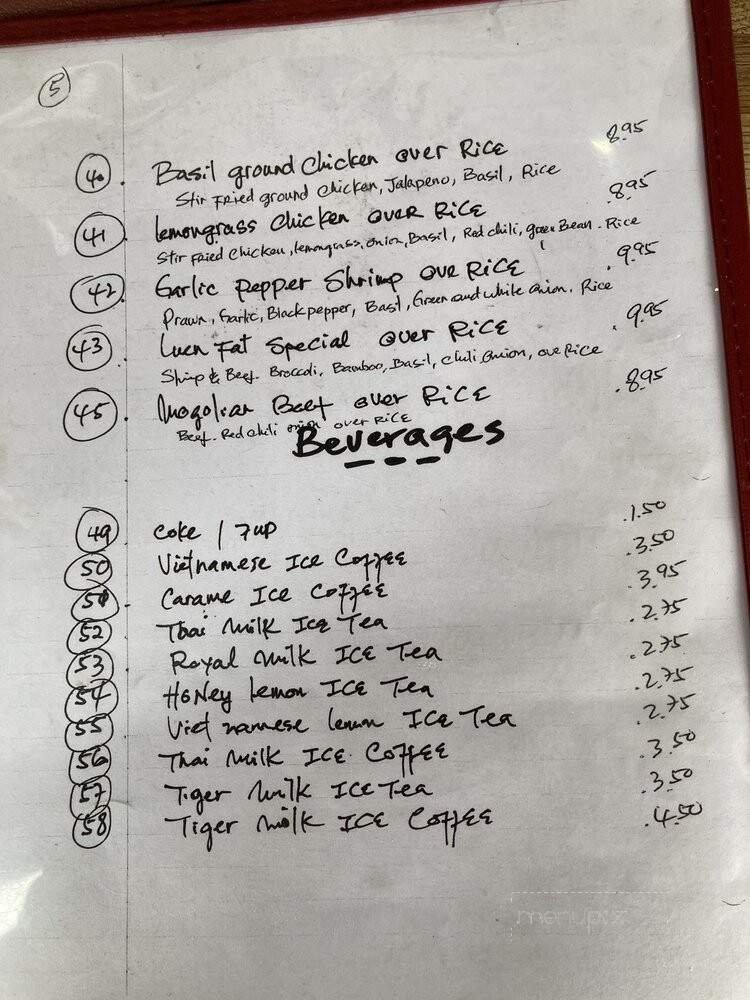 5
40. Basil ground Chicken over Rice 8.95
Stir Fried ground Chicken, Jalapeno, Basil, Rice
41. lemongrass Chicken over Rice .8.95
Stir Fried Chicken, lemongrass, onion, Basil, Red chili, green Bean. Rice
42. Garlic pepper Shrimp ove Rice .9.95
Prawn, Garlic, Black pepper, Basil, Green and white onion. Rice
43 Lucn Fat Special over Rice .9.95
Shimp & Beef. Broccoli, Bamboo, Basil, chili onion, ove Rice
45. Mogolian Beef over Rice .8.95
Beef. Red chili onion over Rice
Beverages
49 Coke / 7up .1.50
50 Vietnamese Ice Coffee .3.50
51 Carame Ice Coffee .3.95
52 Thai Milk Ice Tea .2.75
53 Royal Milk Ice Tea .2.75
54 Honey lemon Ice Tea .2.75
55 Vietnamese lemon Ice Tea .2.75
56 Thai Milk Ice Coffee .3.50
57 Tiger Milk Ice Tea .3.50
58 Tiger Milk Ice Coffee .4.50
menupix